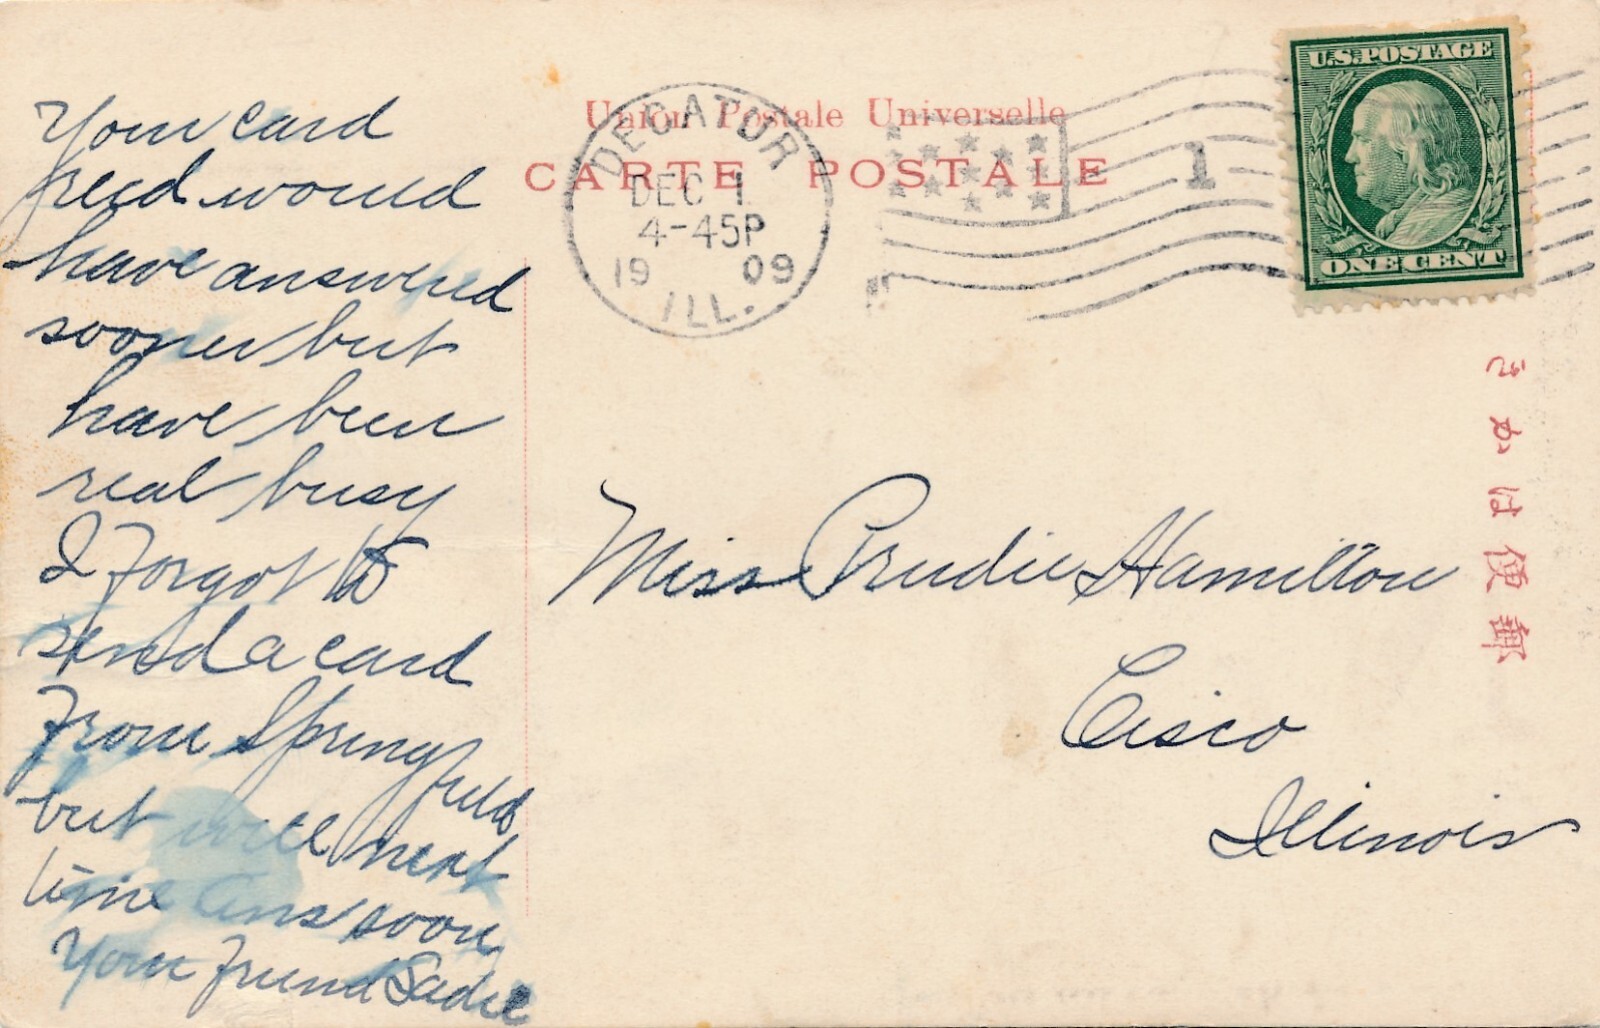 Your card
recd would
have answered
sooner but
have been
real busy
I Forgot to
send a card
From Springfield
but will next
time Ans soon
Your Friend Sadie
Union Postale Universelle
CARTE POSTALE
DECATUR
DEC 1
4-45P
19 09
ILL.
1
U.S. POSTAGE
ONE CENT
Miss Prudie Hamilton
Cisco
Illinois
きがは便郵